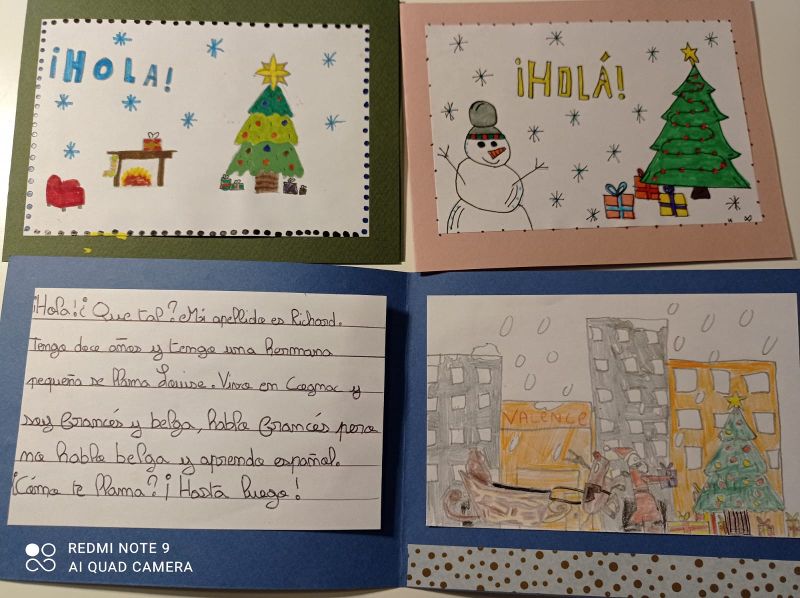 ¡HOLA!
¡HOLÁ!
¡Hola! ¿ Que tal? Mi apellido es Richard.
Tengo doce años y tengo una hermana
pequeña se llama Louise. Vivo en Cognac y
soy francés y belga, hablo francés pero
no hablo belga y aprendo español.
¿Cómo te llama? ¡ Hasta luego!
VALENCE
REDMI NOTE 9
AI QUAD CAMERA